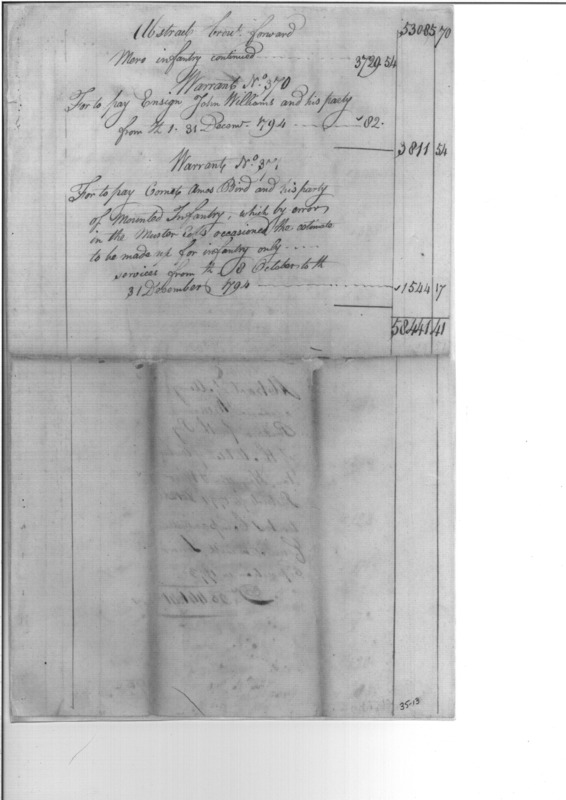 Abstract brou.t forward 53085 70
Mero infantry continued 3729 54
Warrant N.o 370
For to pay Ensign John Williams and his party
from th 1. 31 Decem.r 1794 82.
3811 54
Warrant N.o 371
For to pay Cornet Amos Bird and his party
of Mounted Infantry, which by error
in the Muster occasioned the estimate
to be made up for infantry only
services from th 8 October to th
31 December 1794 1544 17
58441 41
35-13